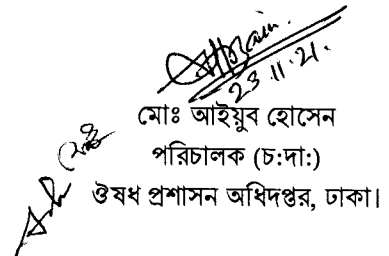 23.11.21.
মোঃ আইয়ুব হোসেন
পরিচালক (চ:দা:)
ঔষধ প্রশাসন অধিদপ্তর, ঢাকা।